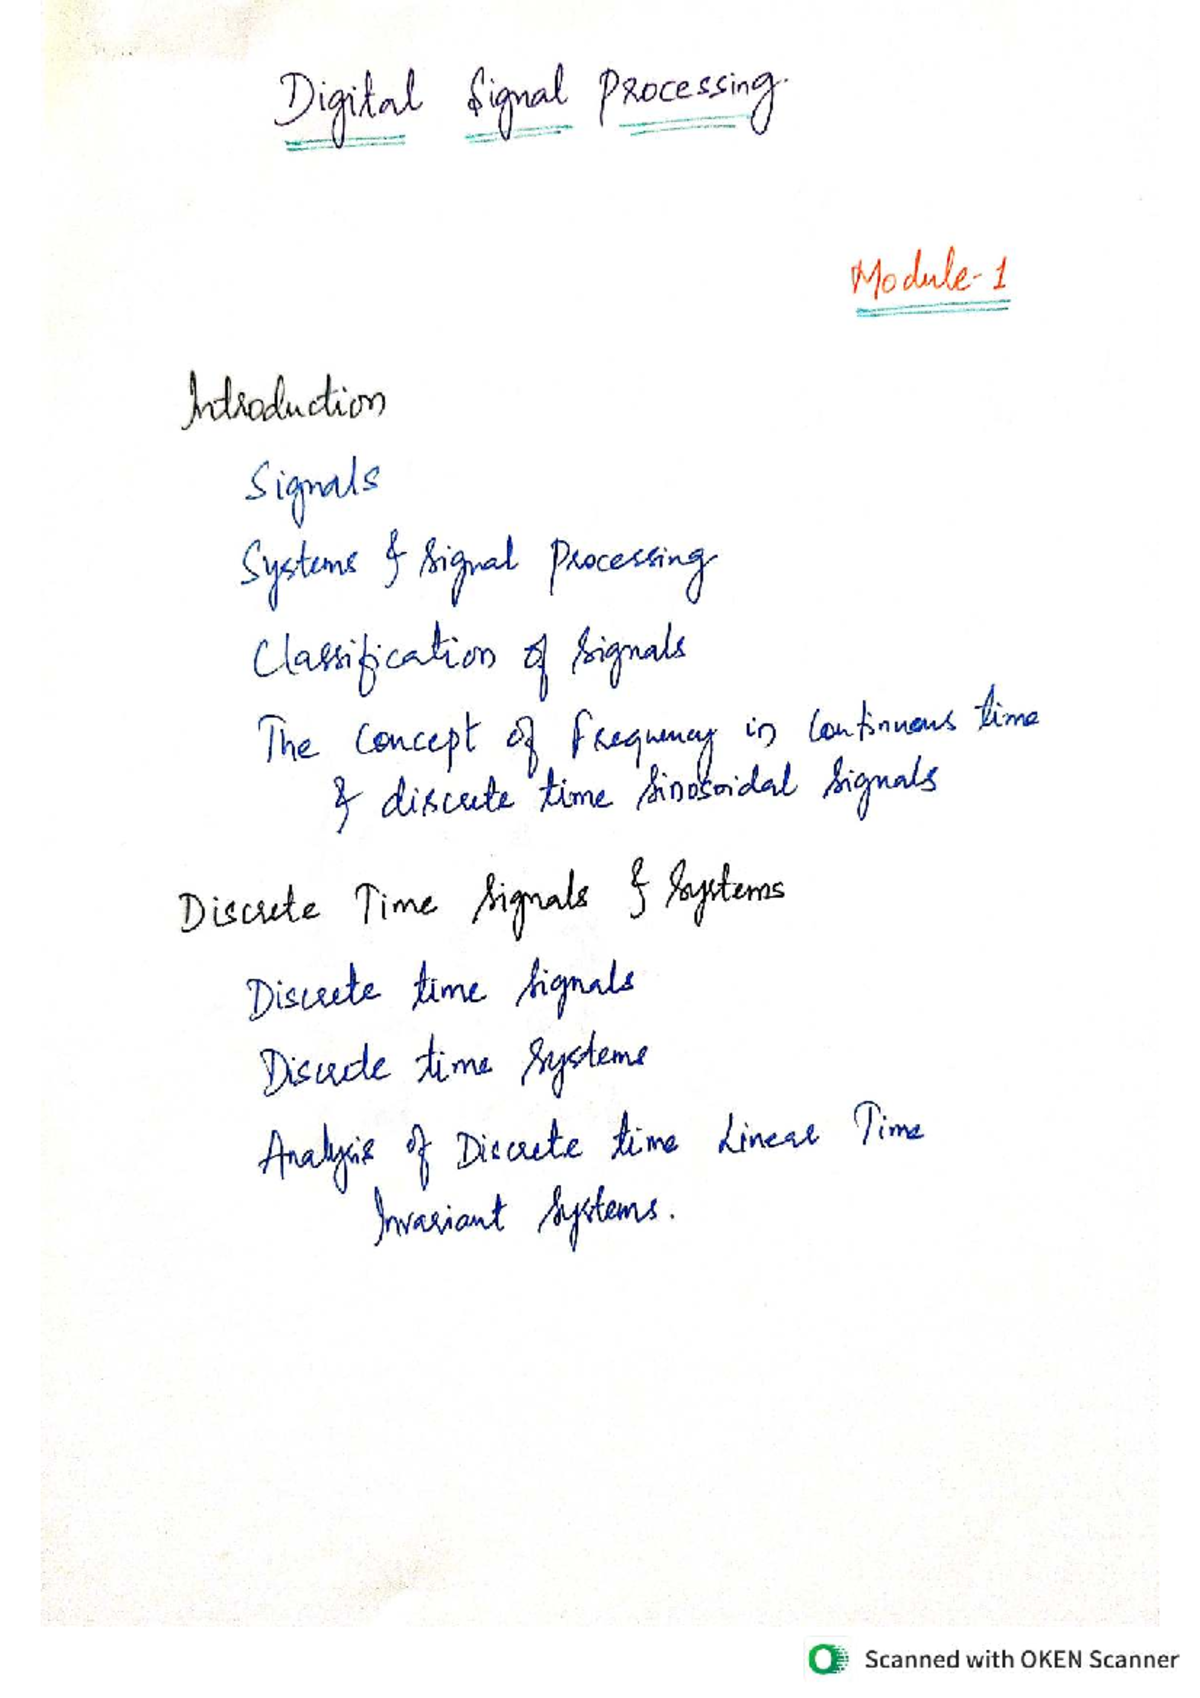 Digital Signal Processing.
Module-1
Introduction
Signals
Systems & Signal Processing
Classification of Signals
The Concept of frequency in Continuous time
& discrete time Sinosoidal Signals
Discrete Time Signals & Systems
Discrete time Signals
Discrete time Systems
Analysis of Discrete time Linear Time
Invariant Systems.
Scanned with OKEN Scanner